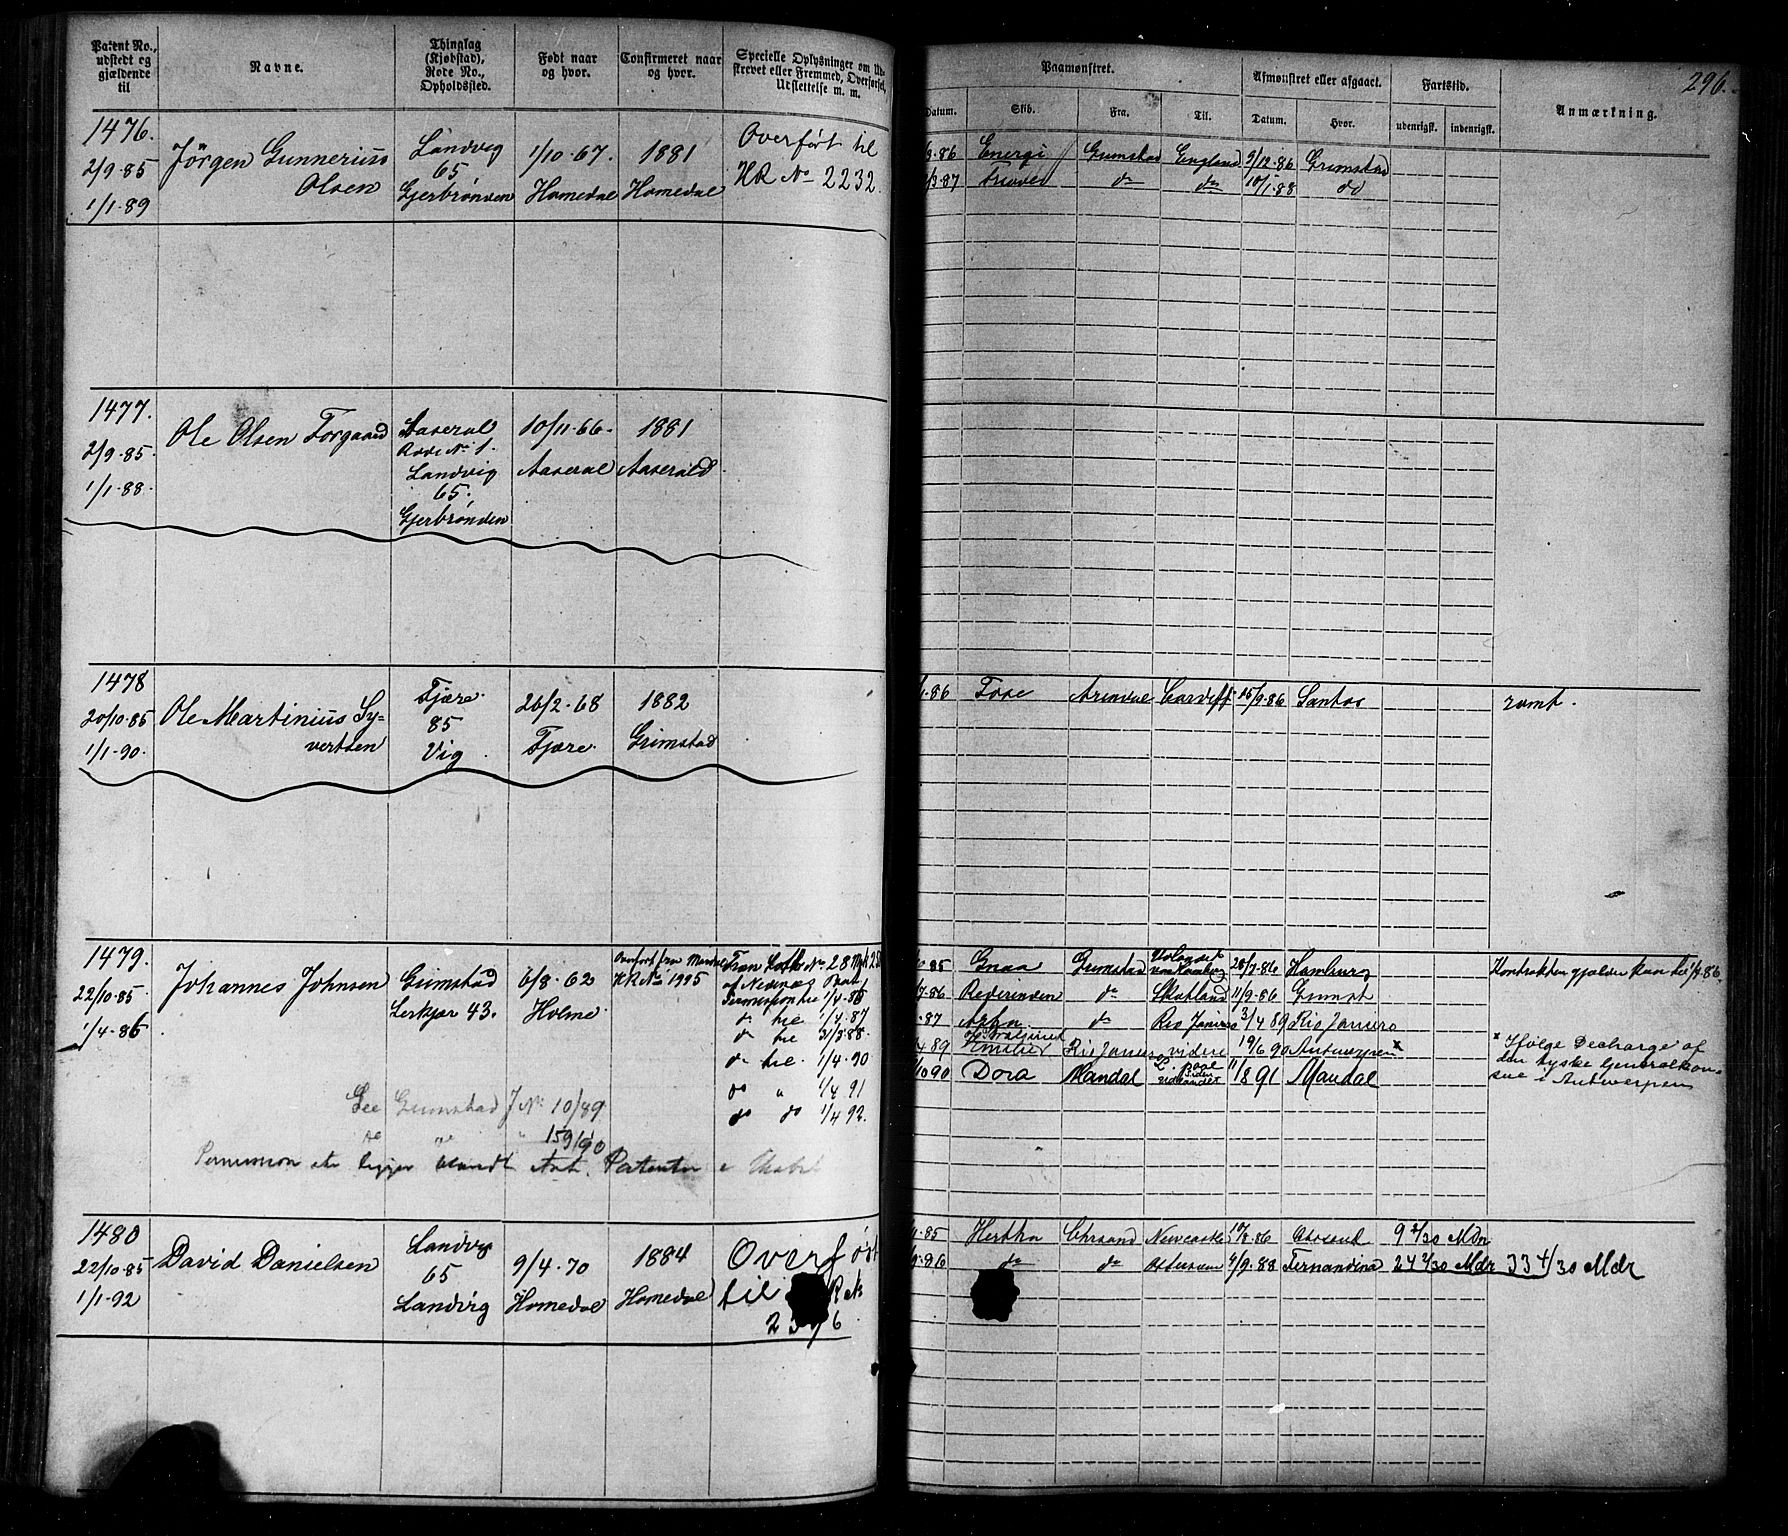 Patent No., udstedt og gjældende til
Navne.
Thinglag (Kjøbstad), Rode No., Opholdssted.
Født naar og hvor.
Confirmeret naar og hvor.
Specielle Oplysninger om Ud-
skrevet eller Fremmed, Overførsel,
Udslettelse m. m.
Paamønstret.
Datum. Skib. Fra. Til.
Afmønstret eller afgaaet.
Datum. Hvor.
Fartstid.
udenrigsk. indenrigsk.
Anmærkning.
296.
1476.
2/9-85
1/1-89
Jörgen Gunnerius
Olsen
Landvig
65
Gjerbrönden
1/10-67.
Homedal
1881
Homedal
Overført til
HR No 2232.
9-86 Energi Grimstad England 9/12-86 Grimstad
3-87 do do 10/1-88 do
1477.
2/9-85.
1/1-88.
Ole Olsen Torgaard
Aaseral
Rode No 1.
Landvig
65.
Gjerbrönden
10/11-66.
Aaseral
1881
Aaserald
1478
20/10-85
1/1-90.
Ole Martinius Sy-
vertsen
Fjære.
85
Vig
26/2-68
Fjære.
1882
Grimstad
-86 Tore Arendal Cardiff 15/9-86 Santos
rømt.
1479.
22/10-85.
1/4-86
Johannes Johnsen
Grimstad
Lerkjær 43.
6/8-62
Holme
Overfört fra Mandal
HR No 1995
Permission til 1/4-86
do til 1/4-87
do til 31/3-88.
do til 1/4-90
do " 1/4 91
do do 1/4 92.
See Grimstad J No 10/89
" " 159/90
-85 Gnaa Grimstad 28/7-86 Hamburg
7-86 Rederinden do Skotland 11/9-86 Grimst
-87 do Rio Janiero 3/4 89 Rio Janiero
4 89 Rio Janiero videre 19/6 90 Antwerpen x
10 90 Dora Mandal 11/8 91 Mandal
Kontrakten gjælder kun til 1/4-86.
* Ifölge Decharge af
den tyske Generalkon-
sul i Antwerpen
1480
22/10-85
1/1-92
David Danielsen
Landvig
65
Landvig
9/4-70
Homedal
1884
Homedal
Overført
til
-85 Hertha Chrsand Newcastle 10/8-86 Chrsand 9 2/30 Mdr
9-86 do do 4/9-88 Fernandina 24 2/30 Mdr 33 4/30 Mdr